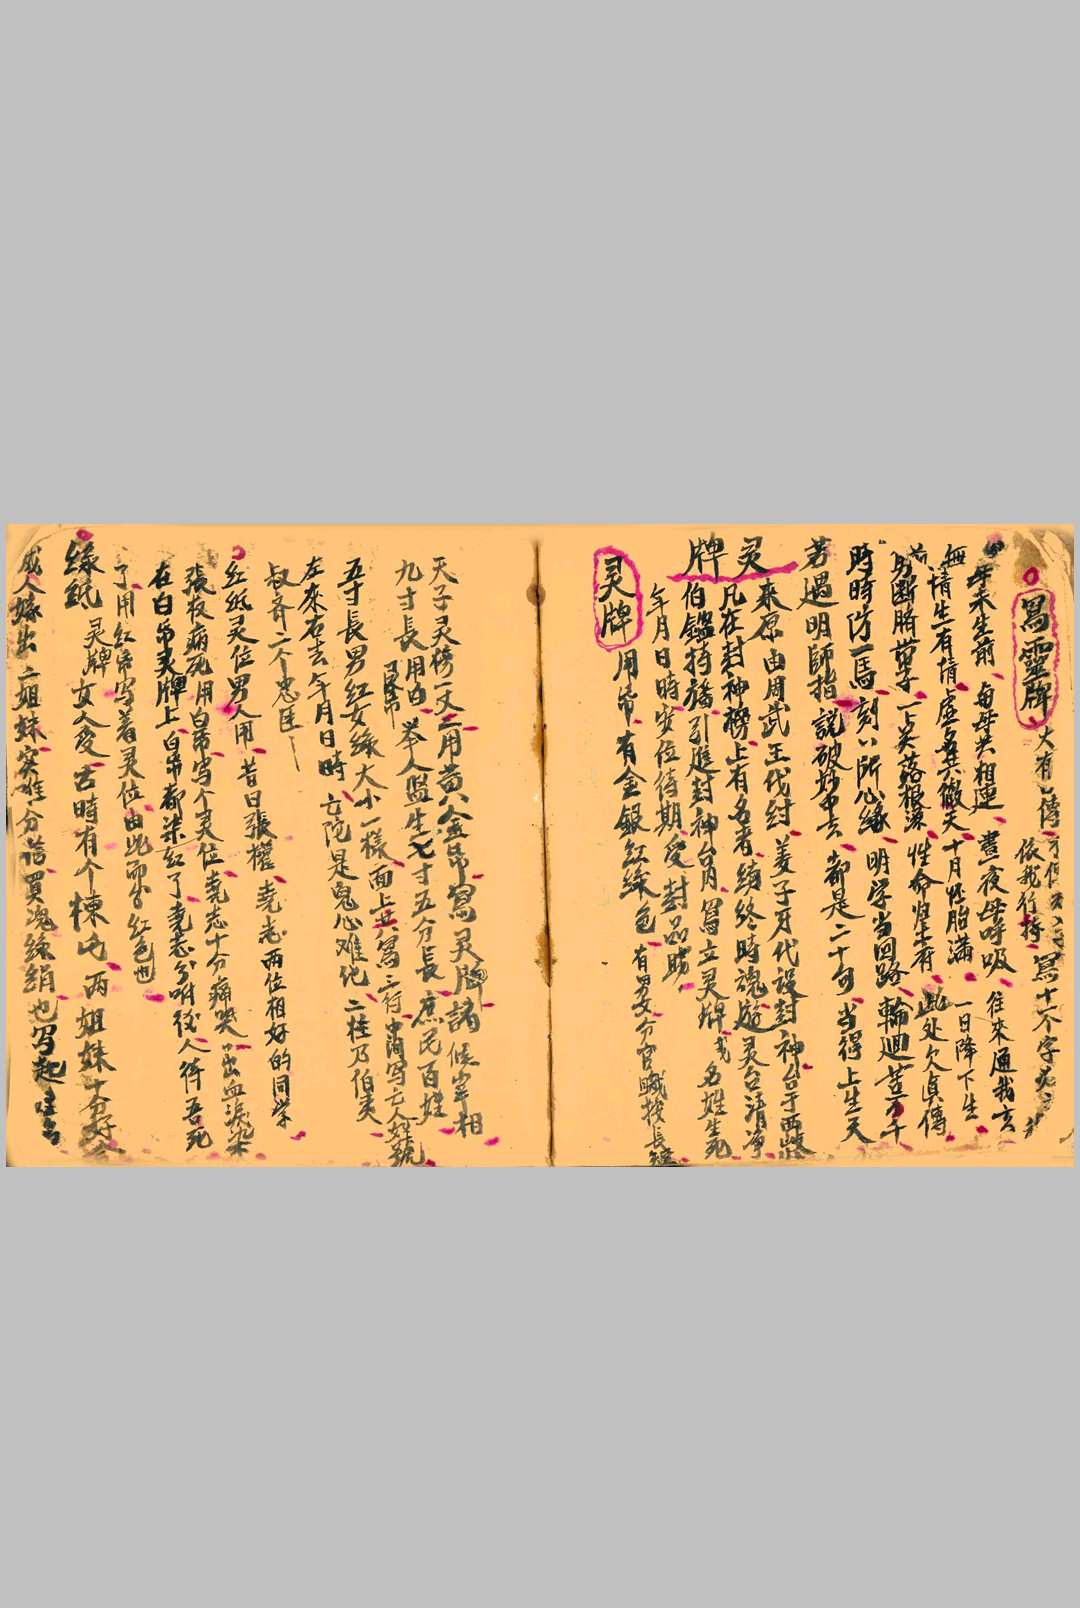 寫靈牌
大有
傳
依我行持
寫十个字
年未生前 每母共相連 晝夜母呼吸 往來通我玄
無情生有情 虛無共徹天 十月怪胎滿 一日降下生
剪断臍帶子 一点落根深 性命皆未有 此处欠真傳
時時防一馬 刻刻所心緣 明学当回路 輪廻苦万千
若遇明師指 說破妙中玄 都是二十句 当得上生天
灵牌
來原由周武王伐紂 姜子牙代設封神台于西岐
凡在封神榜上有名者 緣終時魂遊灵台清净
伯鑑持旛引進封神台内 寫立灵牌 或名姓生死
年月日時安位待期 受封品賜
灵牌
用帛 有金銀紅綠色 有男女分官職按長短
天子灵榜一丈二用黄八金帛寫灵牌諸侯宰相
九寸長用白帛 举人監生七寸五分長 庶民百姓
五寸長男紅女綠大小一樣 面上共寫三行中间写亡人姓號
左來右去年月日時 亡陀是鬼心难化 二柱乃伯夷
叔齐二个忠臣
紅纸灵位男人用 昔日張權 堯志两位相好的同学
張权病死用白帛写个灵位堯志十分痛哭 出血淚染
在白帛灵牌上 白帛都染紅了堯志分咐後人待吾死
了用紅帛写着灵位由此而分紅色也
緣紙 灵牌女人受 古時有个棟氏 两姐妹十分好
成人嫁出 二姐妹 分 買塊綠絹也写起